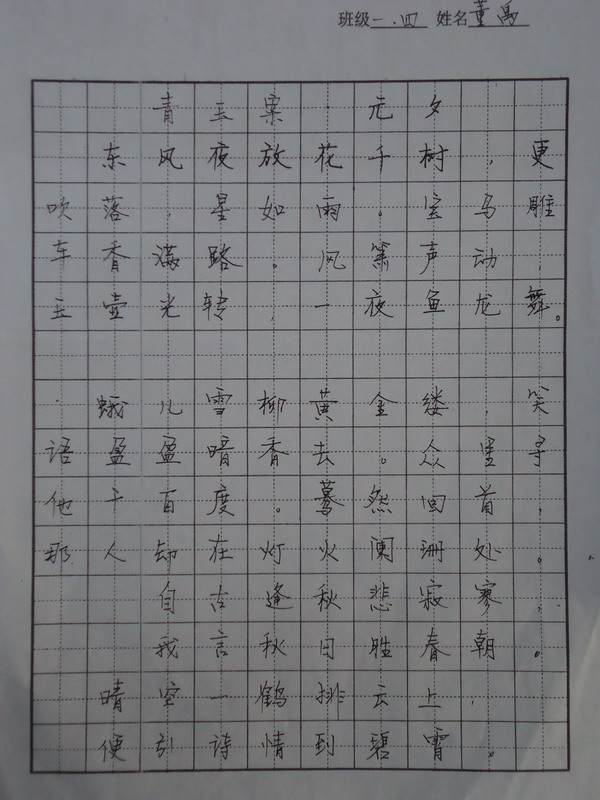 班级一.四 姓名董禹
青玉案·元夕
东风夜放花千树,更
吹落,星如雨。宝马雕
车香满路。风箫声动,
玉壶光转,一夜鱼龙舞。
蛾儿雪柳黄金缕,笑
语盈盈暗香去。众里寻
他千百度。蓦然回首,
那人却在灯火阑珊处。
自古逢秋悲寂寥,
我言秋日胜春朝。
晴空一鹤排云上,
便引诗情到碧霄。